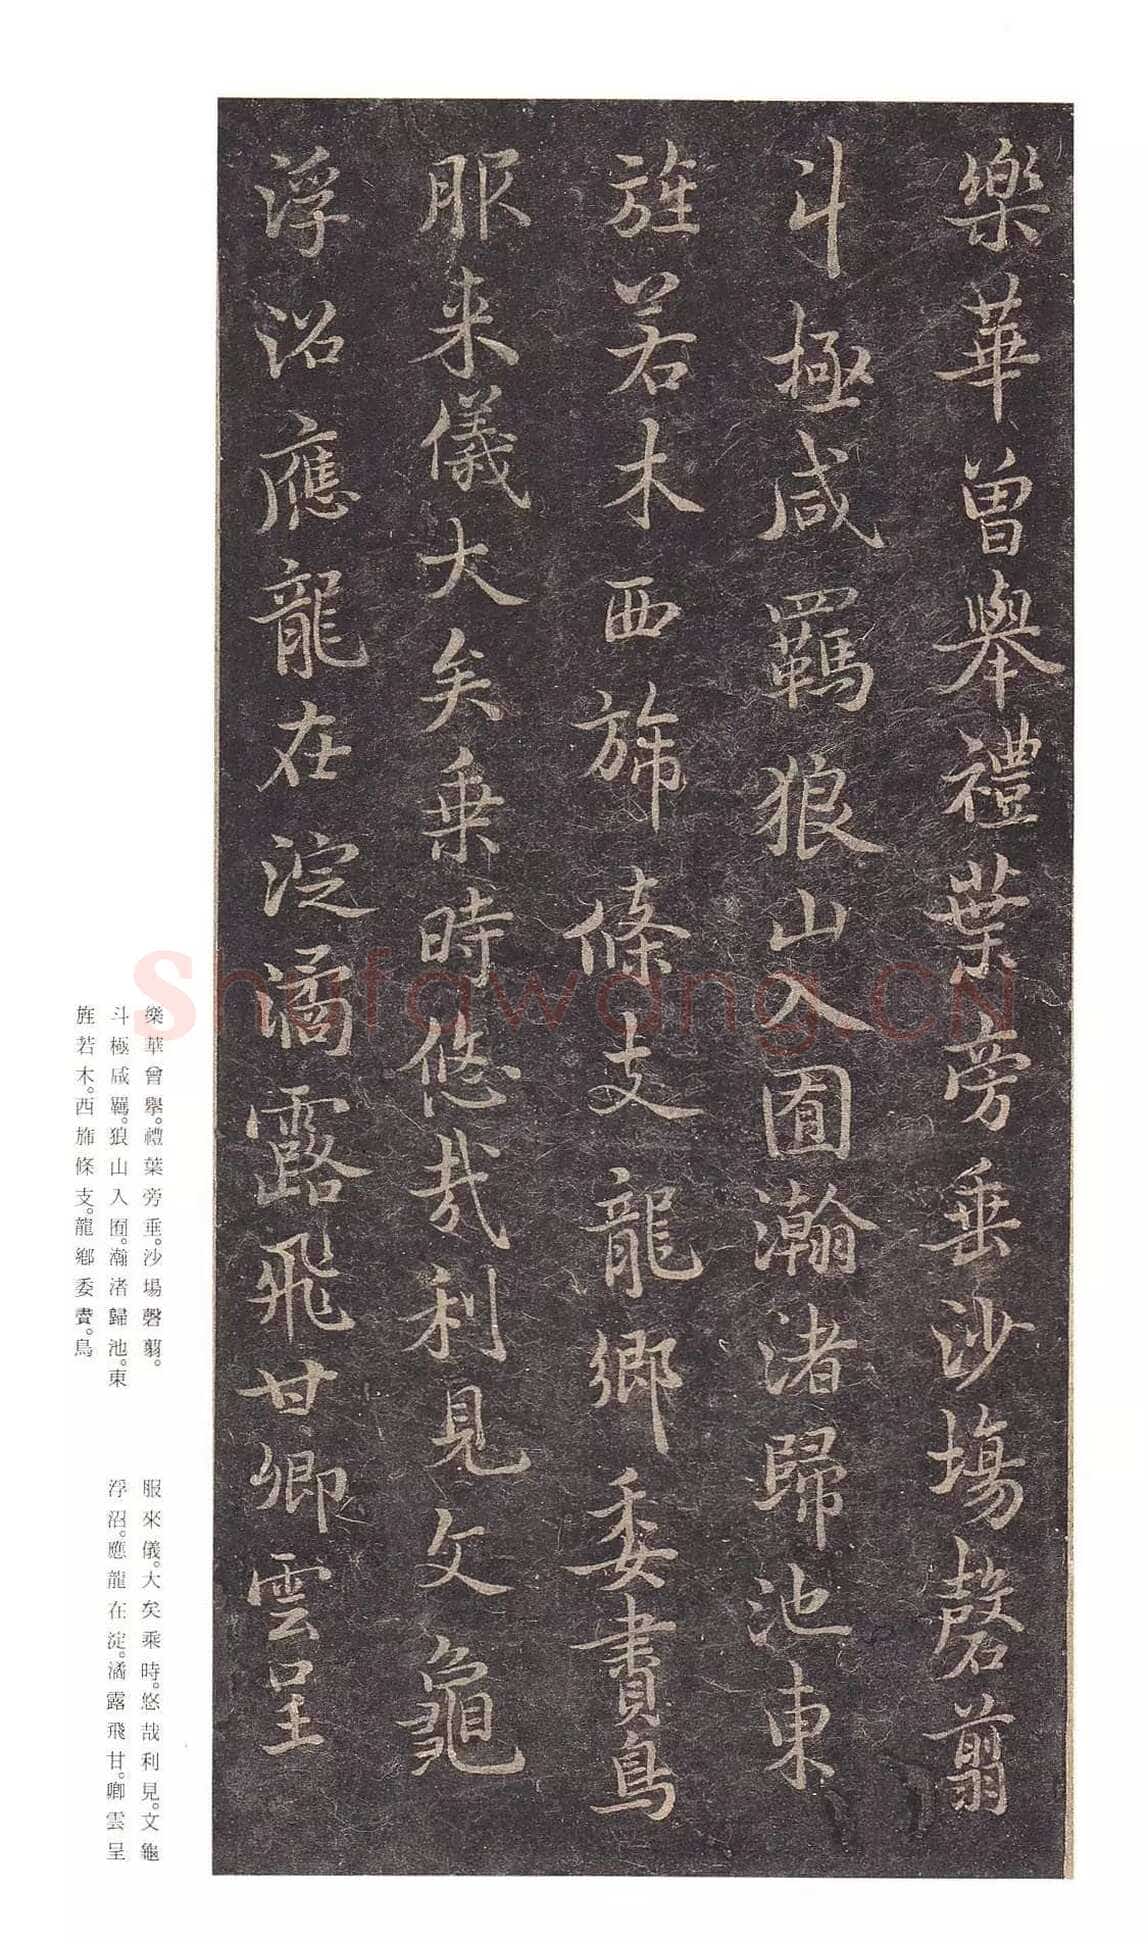 樂華曾舉禮葉旁垂沙場磬翦
斗極咸羈狼山入囿瀚渚歸池東
旌若木西旆條支龍鄉委賮鳥
服来儀大矣乗時悠哉利見文龜
浮沼應龍在淀潏露飛甘卿雲呈
樂華曾舉。禮葉旁垂。沙場磬翦。
斗極咸羈。狼山入囿。瀚渚歸池。東
旌若木。西旆條支。龍鄉委賮。鳥
服來儀。大矣乘時。悠哉利見。文龜
浮沼。應龍在淀。潏露飛甘。卿雲呈
Shufawang.CN